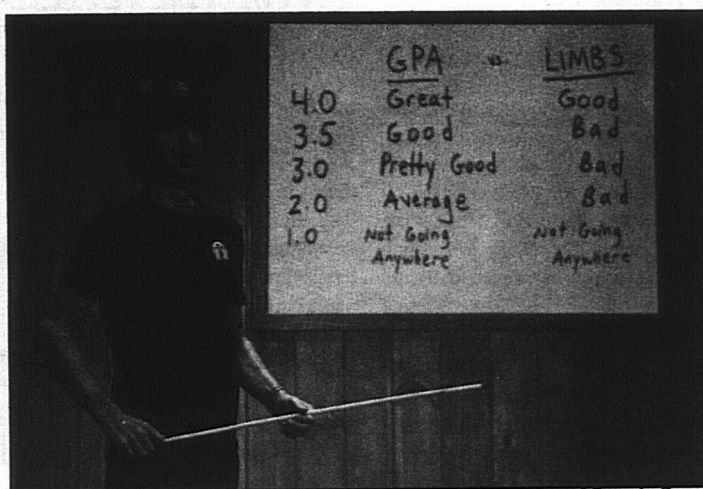 GPA " LIMBS
4.0 Great Good
3.5 Good Bad
3.0 Pretty Good Bad
2.0 Average Bad
1.0 Not Going Not Going
Anywhere Anywhere